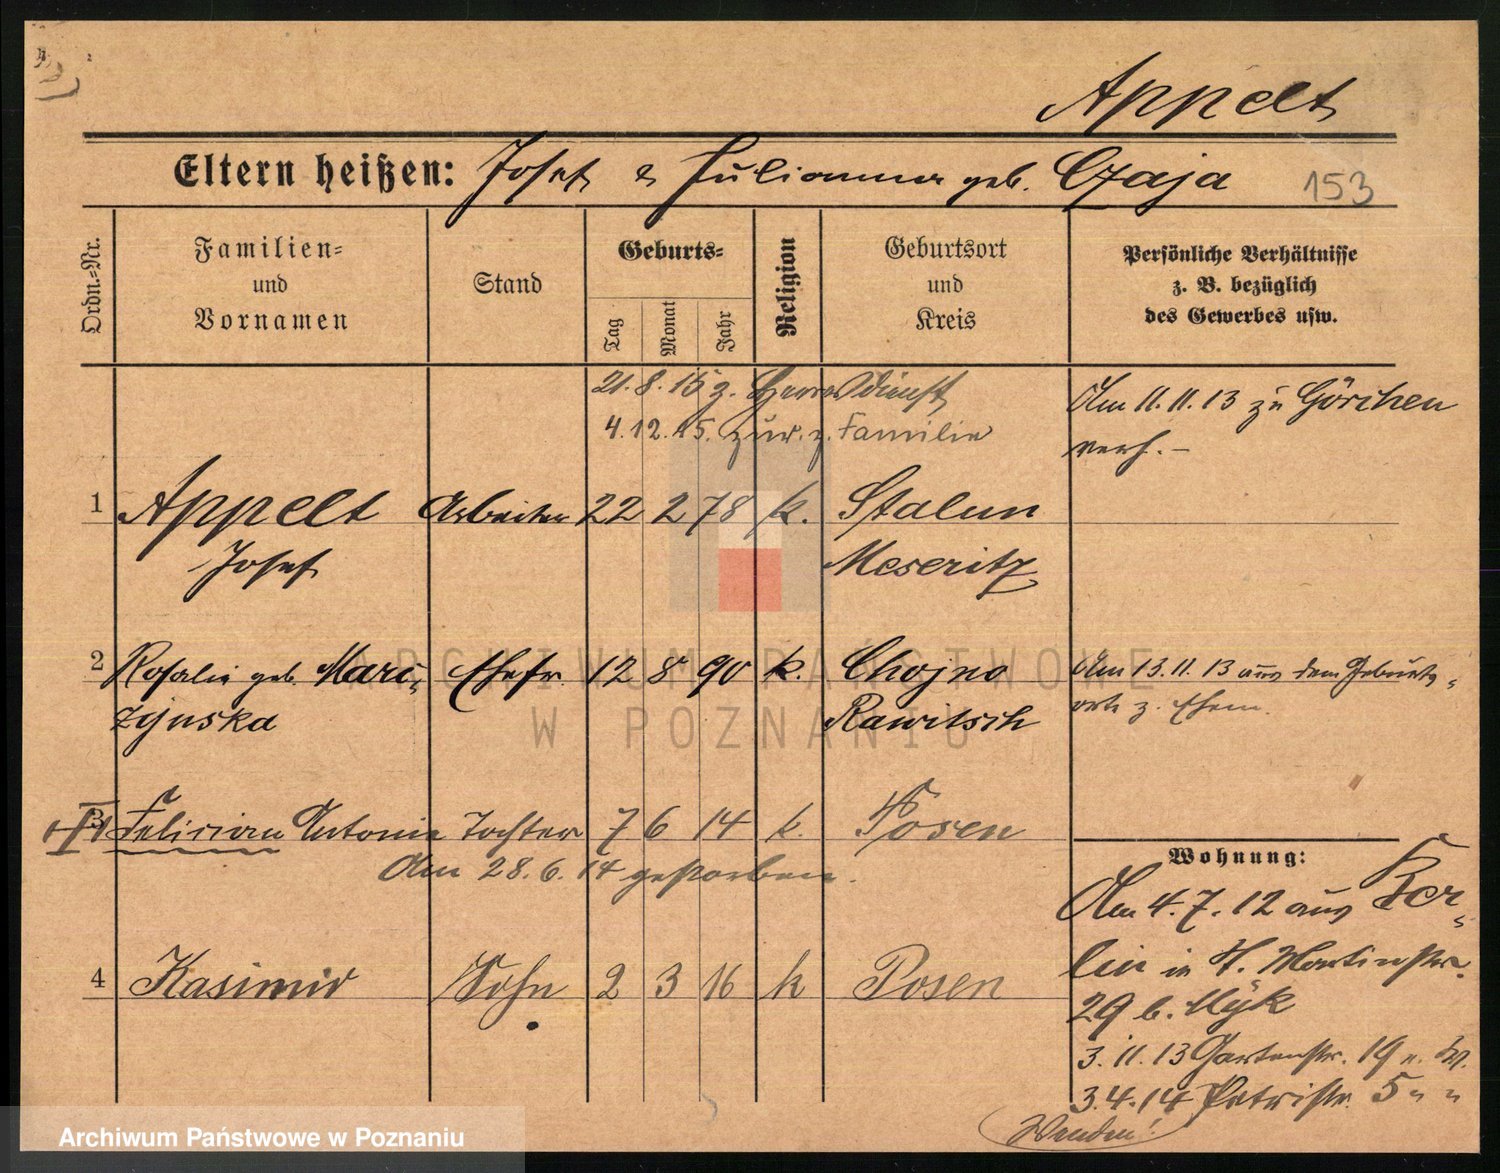 Appelt
Eltern heißen: Josef & Julianna geb. Czaja 153
Ordn.=Nr.
Familien=
und
Vornamen
Stand
Geburts=
Tag
Monat
Jahr
Religion
Geburtsort
und
Kreis
Persönliche Verhältnisse
z. B. bezüglich
des Gewerbes usw.
21. 8. 15 z. Heeresdienst
4. 12. 15. zur. z. Familie
Am 11. 11. 13 zu Görchen
verh. –
1 Appelt Arbeiter 22 2 78 k. Stalun
Josef Meseritz
2 Rosalie geb. Marc= Ehefr. 12 8 90 k. Chojno
zynska Rawitsch
Am 13. 11. 13 aus dem Geburts=
orte z. Ehem.
3 Felician Antonie Tochter 7 6 14 k. Posen
Am 28. 6. 14 gestorben.
4 Kasimir Sohn 2 3 16 k Posen
Wohnung:
Am 4. 7. 12 aus Ber=
lin in St. Martinstr.
29 b. Myk
3. 11. 13 Gartenstr. 19 u. W.
3. 4. 14 Petristr. 5 " "
Wenden!
ARCHIWUM PAŃSTWOWE
W POZNANIU
Archiwum Państwowe w Poznaniu